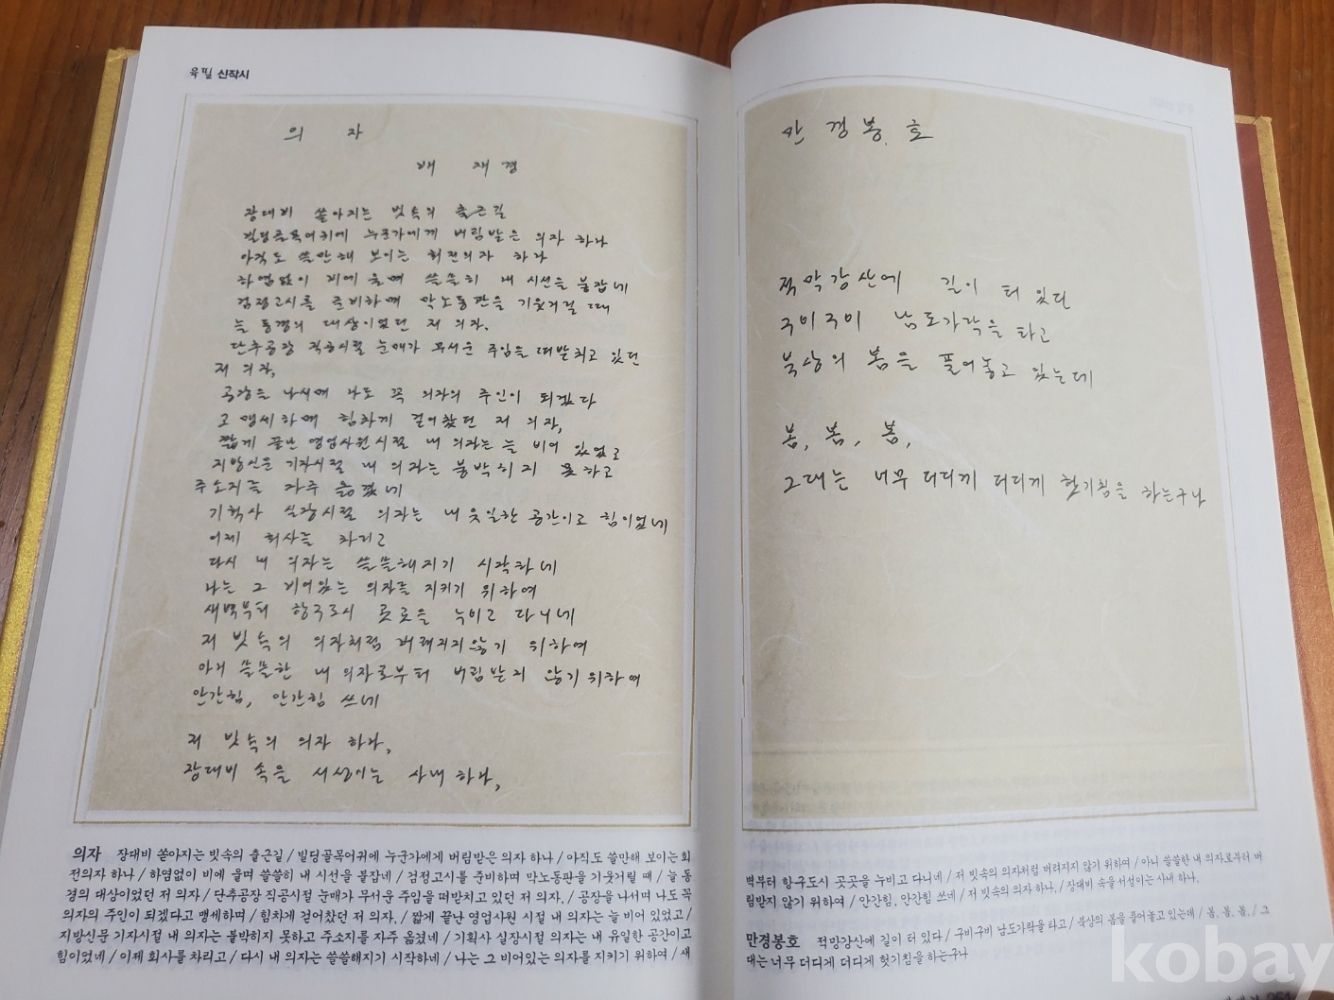 육필 신작시
의 자
배 재 경
장대비 쏟아지는 빗속의 출근길
빌딩골목어귀에 누군가에게 버림받은 의자 하나
아직도 쓸만해 보이는 회전의자 하나
하염없이 비에 울며 쓸쓸히 내 시선을 붙잡네
검정고시를 준비하며 막노동판을 기웃거릴 때
늘 동경의 대상이었던 저 의자.
단추공장 직공시절 눈매가 무서운 주임을 떠받치고 있던
저 의자,
공장을 나서며 나도 꼭 의자의 주인이 되겠다
고 맹세하며 힘차게 걸어찼던 저 의자,
짧게 끝난 영업사원시절 내 의자는 늘 비어 있었고
지방신문 기자시절 내 의자는 붙박히지 못하고
주소지를 자주 옮겼네
기획사 실장시절 의자는 내 유일한 공간이고 힘이었네
이제 회사를 차리고
다시 내 의자는 쓸쓸해지기 시작하네
나는 그 비어있는 의자를 지키기 위하여
새벽부터 항구도시 곳곳을 누비고 다니네
저 빗속의 의자처럼 버려지지않기 위하여
아니 쓸쓸한 내 의자로부터 버림받지 않기위하여
안간힘, 안간힘 쓰네
저 빗속의 의자 하나,
장대비 속을 서성이는 사내 하나,
의자 장대비 쏟아지는 빗속의 출근길 / 빌딩골목어귀에 누군가에게 버림받은 의자 하나 / 아직도 쓸만해 보이는 회
전의자 하나 / 하염없이 비에 울며 쓸쓸히 내 시선을 붙잡네 / 검정고시를 준비하며 막노동판을 기웃거릴 때 / 늘 동
경의 대상이었던 저 의자. / 단추공장 직공시절 눈매가 무서운 주임을 떠받치고 있던 저 의자, / 공장을 나서며 나도 꼭
의자의 주인이 되겠다고 맹세하며 / 힘차게 걸어찼던 저 의자, / 짧게 끝난 영업사원 시절 내 의자는 늘 비어 있었고 /
지방신문 기자시절 내 의자는 불박히지 못하고 주소지를 자주 옮겼네 / 기획사 실장시절 의자는 내 유일한 공간이고
힘이었네 / 이제 회사를 차리고 / 다시 내 의자는 쓸쓸해지기 시작하네 / 나는 그 비어있는 의자를 지키기 위하여 / 새
만 경 봉 호
적막강산에 길이 터 있단
구비구비 남도가락을 타고
북상의 봄을 풀어놓고 있는데
봄, 봄, 봄,
그대는 너무 더디게 더디게 헛기침을 하는구나
벽부터 항구도시 곳곳을 누비고 다니네 / 저 빗속의 의자처럼 버려지지 않기 위하여 / 아니 쓸쓸한 내 의자로부터 버
림받지 않기 위하여 / 안간힘, 안간힘 쓰네 / 저 빗속의 의자 하나, / 장대비 속을 서성이는 사내 하나,
만경봉호 적망강산에 길이 터 있다 / 구비구비 남도가락을 타고 / 북상의 봄을 풀어놓고 있는데 / 봄, 봄, 봄, / 그
대는 너무 더디게 더디게 헛기침을 하는구나
kobay